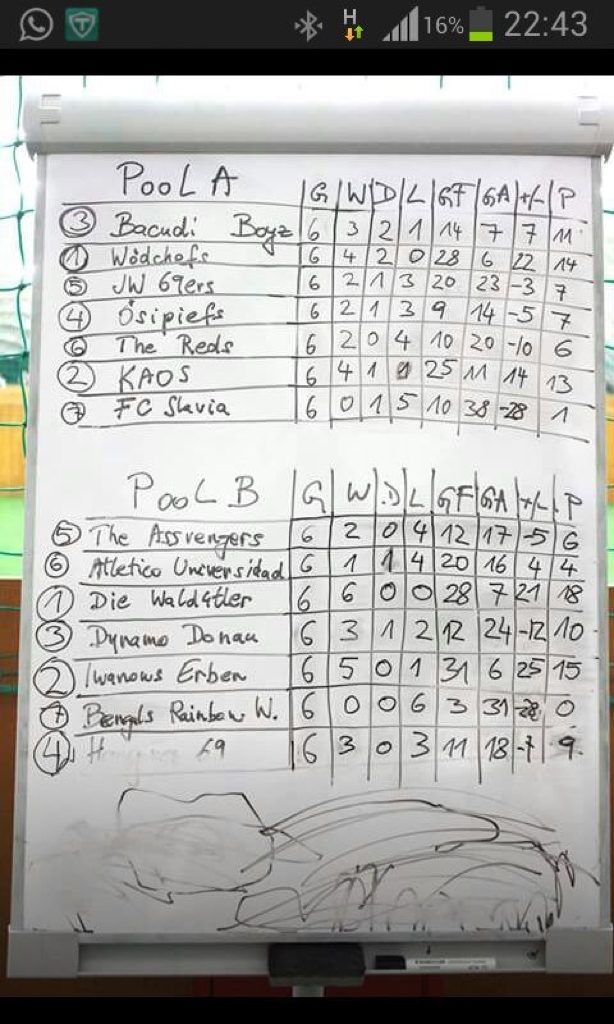 H 16% 22:43
POOL A G W D L GF GA +/- P
3 Bacudi Boyz 6 3 2 1 14 7 7 11
1 Wödchefs 6 4 2 0 28 6 22 14
5 JW 69ers 6 2 1 3 20 23 -3 7
4 Ösipiefs 6 2 1 3 9 14 -5 7
6 The Reds 6 2 0 4 10 20 -10 6
2 KAOS 6 4 1 1 25 11 14 13
7 FC Slavia 6 0 1 5 10 38 -28 1
POOL B G W D L GF GA +/- P
5 The Assvengers 6 2 0 4 12 17 -5 6
6 Atletico Universidad 6 1 1 4 20 16 4 4
1 Die Wald4tler 6 6 0 0 28 7 21 18
3 Dynamo Donau 6 3 1 2 12 24 -12 10
2 Iwanows Erben 6 5 0 1 31 6 25 15
7 Bengals Rainbow W. 6 0 0 6 3 31 -28 0
4 69 6 3 0 3 11 18 -7 9